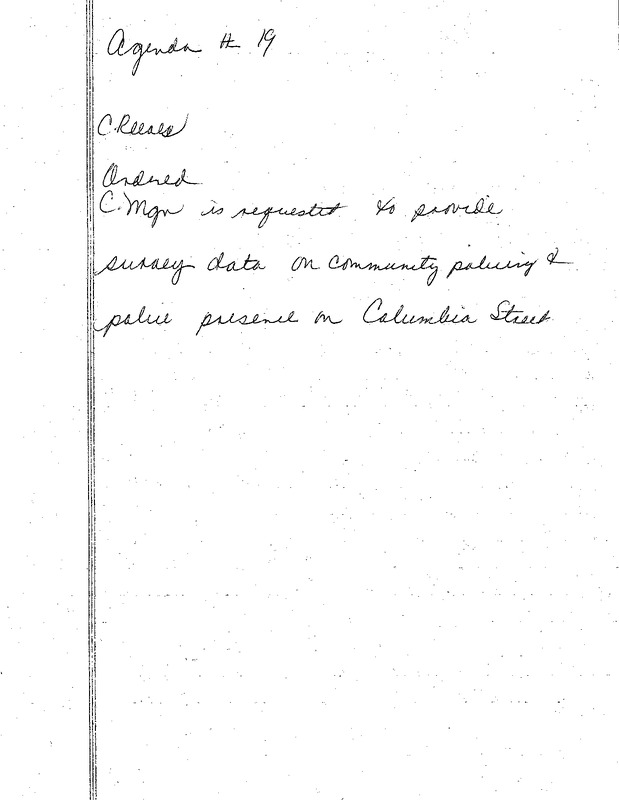 Agenda # 19
C. Reeves
Ordered
C. Mgr is requested to provide
survey data on community policing &
police presence on Columbia Street